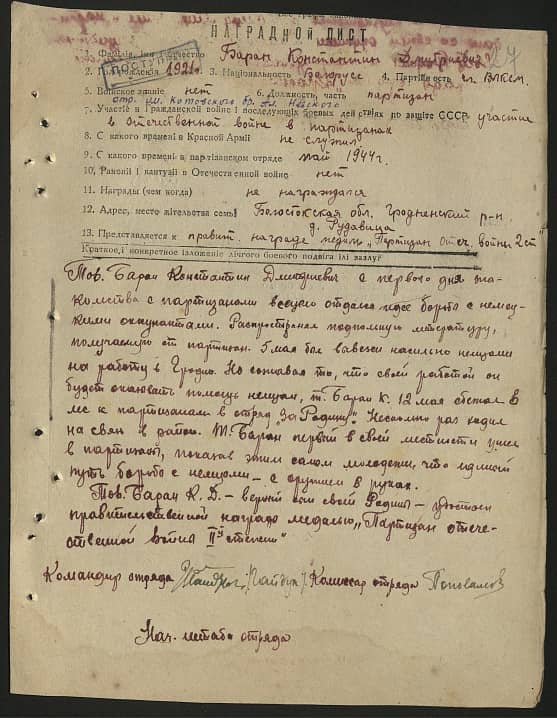 НАГРАДНОЙ ЛИСТ
1. Фамилия, имя Баран Константин Дмитриевич 27
2. Год рождения 1921г. 3. Национальность Белорус 4. Партийность чл. ВЛКСМ.
5. Воинское звание нет 6. Должность, часть партизан
отр. им. Котовского бр. Ал. Невского
7. Участие в гражданской войне и последующих боевых действиях по защите СССР участие
в Отечественной войне в партизанах
8. С какого времени в Красной Армии не служил
9. С какого времени в партизанском отряде май 1944г.
10. Ранения и контузии в Отечественной войне нет
11. Награды (чем когда) не награждался
12. Адрес, место жительства семьи Белостокская обл. Гродненский р-н.
д. Рудавица
13. Представляется к правит. награде медаль „Партизан Отеч. войны 2 ст"
Краткое, и конкретное изложение личного боевого подвига или заслуг
Тов. Баран Константин Дмитриевич с первого дня зна-
комства с партизанами всецело отдался идее борьбы с немец-
кими оккупантами. Распространял подпольную литературу,
получаемую от партизан. 5 мая был вывезен насильно немцами
на работу в Гродно. Но сознавая то, что своей работой он
будет оказывать помощь немцам, т. Баран К. 12 мая сбежал в
лес к партизанам в отряд „За Родину". Несколько раз ходил
на связь в район. Т. Баран первый в своей местности ушел
в партизаны, показав этим самым молодежи, что единый
путь борьбы с немцами – с оружием в руках.
Тов. Баран К. Д. – верный сын своей Родины – удостоен
правительственной награды медалью „Партизан отече-
ственной войны IIй степени"
Командир отряда /Гайдук/. Комиссар отряда
Нач. штаба отряда